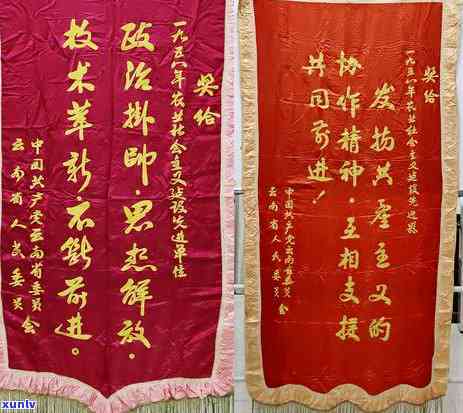 奖给
一九五八年农业社会主义建设先进单位
政治掛帥·思想解放·
技术革新·不斷前進。
中国共产党云南省委员会
云南省人民委员会
奖给
一九五八年农业社会主义建设先进县
发扬共產主义的
协作精神·互相支援
共同前進！
中国共產党云南省委员会
云南省人民委员会
xuntv